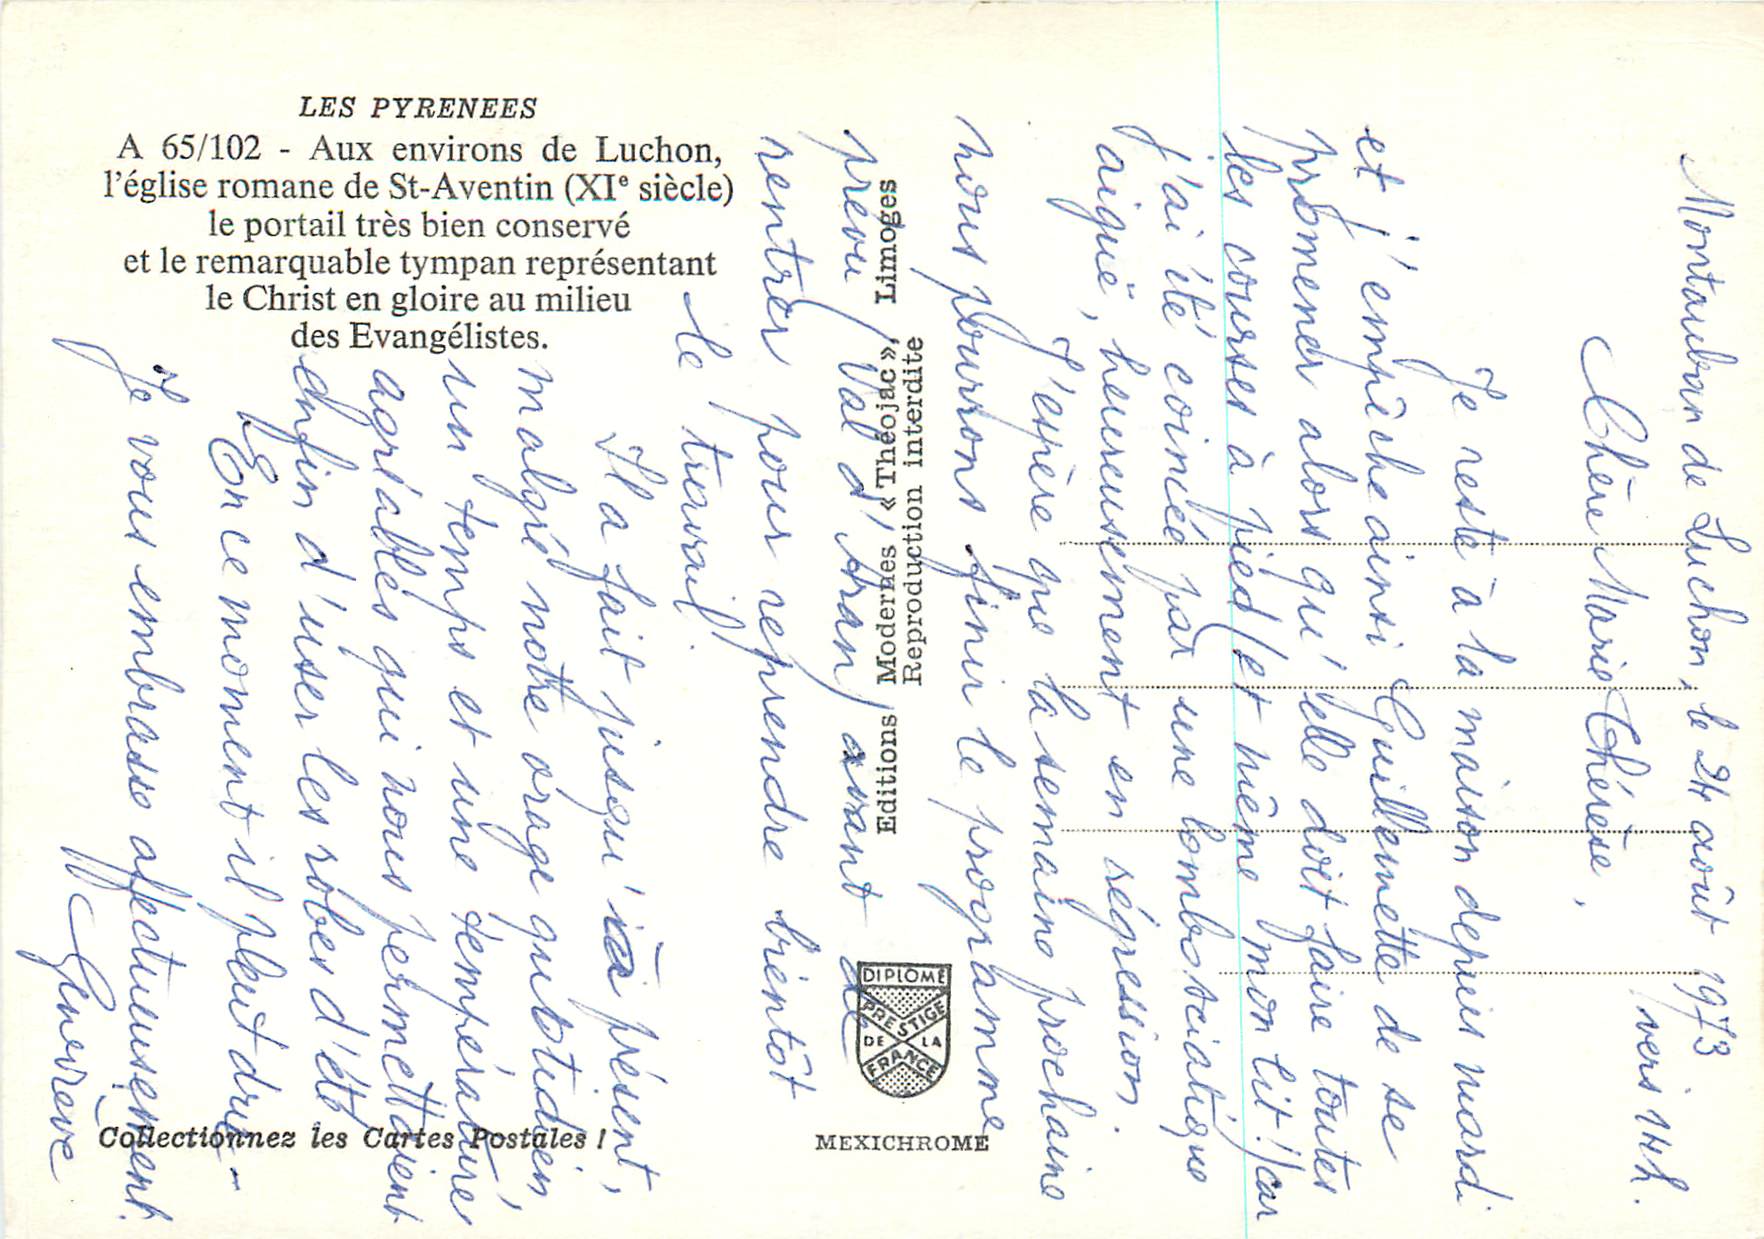 LES PYRENEES
A 65/102 - Aux environs de Luchon,
l'église romane de St-Aventin (XIe siècle)
le portail très bien conservé
et le remarquable tympan représentant
le Christ en gloire au milieu
des Evangélistes.
Editions Modernes « Théojac », Limoges
Reproduction interdite
DIPLOME
PRESTIGE
DE LA
FRANCE
MEXICHROME
Collectionnez les Cartes Postales !
Montauban de Luchon, le 24 août 1973
vers 14h.
Chère Marie Thérèse,
Je reste à la maison depuis mardi
et j'empêche ainsi Guillemette de se
promener alors qu'elle doit faire toutes
les courses à pied (et même mon lit!) car
j'ai été coincée par une lombosciatique
aiguë, heureusement en régression.
J'espère que la semaine prochaine
nous pourrons finir le programme
prévu (Val d'Aran) avant de
rentrer pour reprendre bientôt
le travail.
Il a fait jusqu'à présent,
malgré notre orage quotidien,
un temps et une température
agréables qui nous permettaient
enfin d'user les robes d'été
En ce moment il pleut dru -
Je vous embrasse affectueusement.
Geneviève